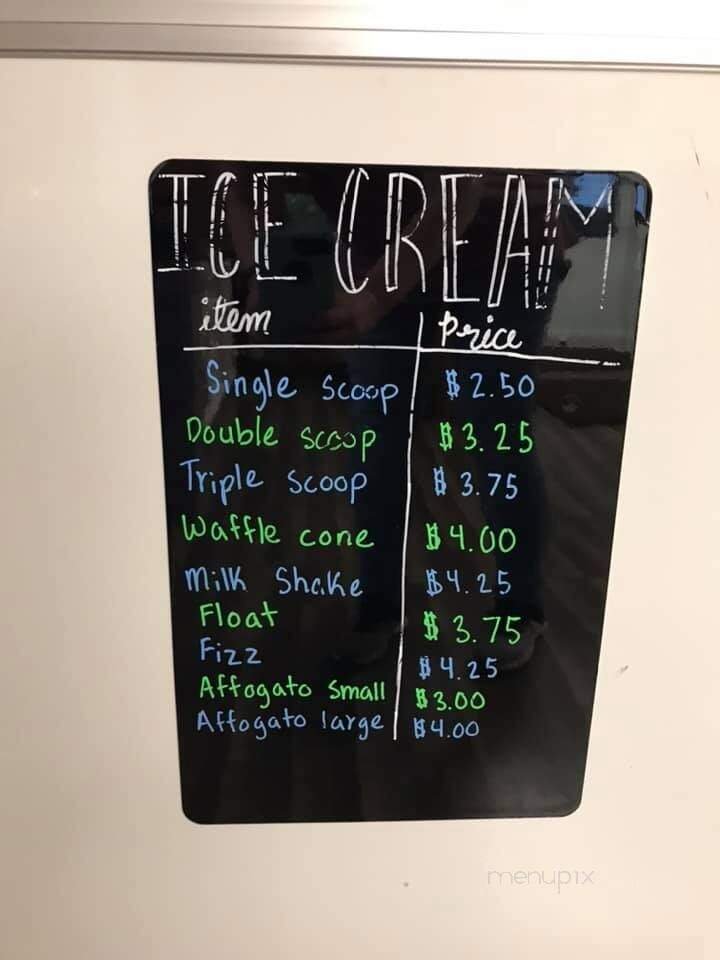 ICE CREAM
item Price
Single Scoop $2.50
Double scoop $3.25
Triple Scoop $3.75
Waffle cone $4.00
Milk Shake $4.25
Float $3.75
Fizz $4.25
Affogato Small $3.00
Affogato large $4.00
menupix